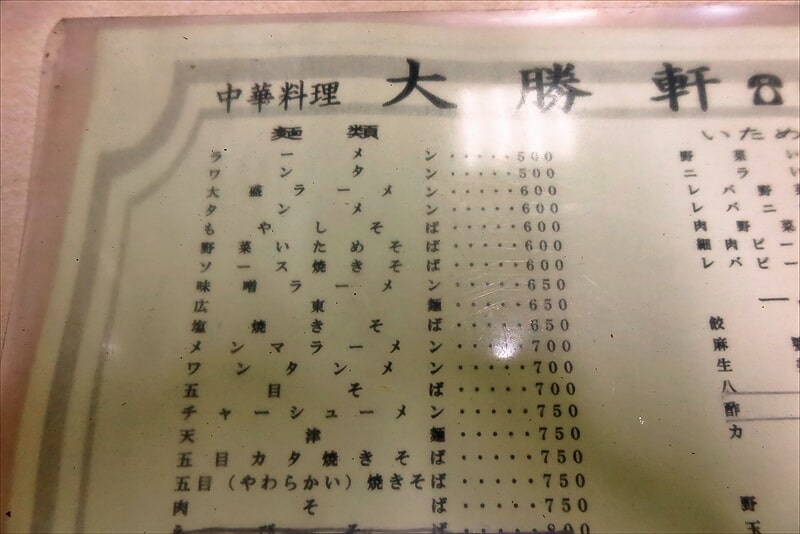 中華料理 大勝軒 ☎
麺類
ラーメン・・・・・500
ワンタン・・・・・500
大盛ラーメン・・・・・600
タンメン・・・・・600
もやしそば・・・・・600
野菜いためそば・・・・・600
ソース焼きそば・・・・・600
味噌ラーメン・・・・・650
広東麺・・・・・650
塩焼きそば・・・・・650
メンマラーメン・・・・・700
ワンタンメン・・・・・700
五目そば・・・・・700
チャーシューメン・・・・・750
天津麺・・・・・750
五目カタ焼きそば・・・・・750
五目(やわらかい)焼きそば・・・・・750
肉そば・・・・・750
そば・・・・・800
いため
野菜い
ニラい
レバ野菜
レバニ
肉野菜
細肉ピー
レバピー
一
餃
麻
生
八
酢
カ
野
玉